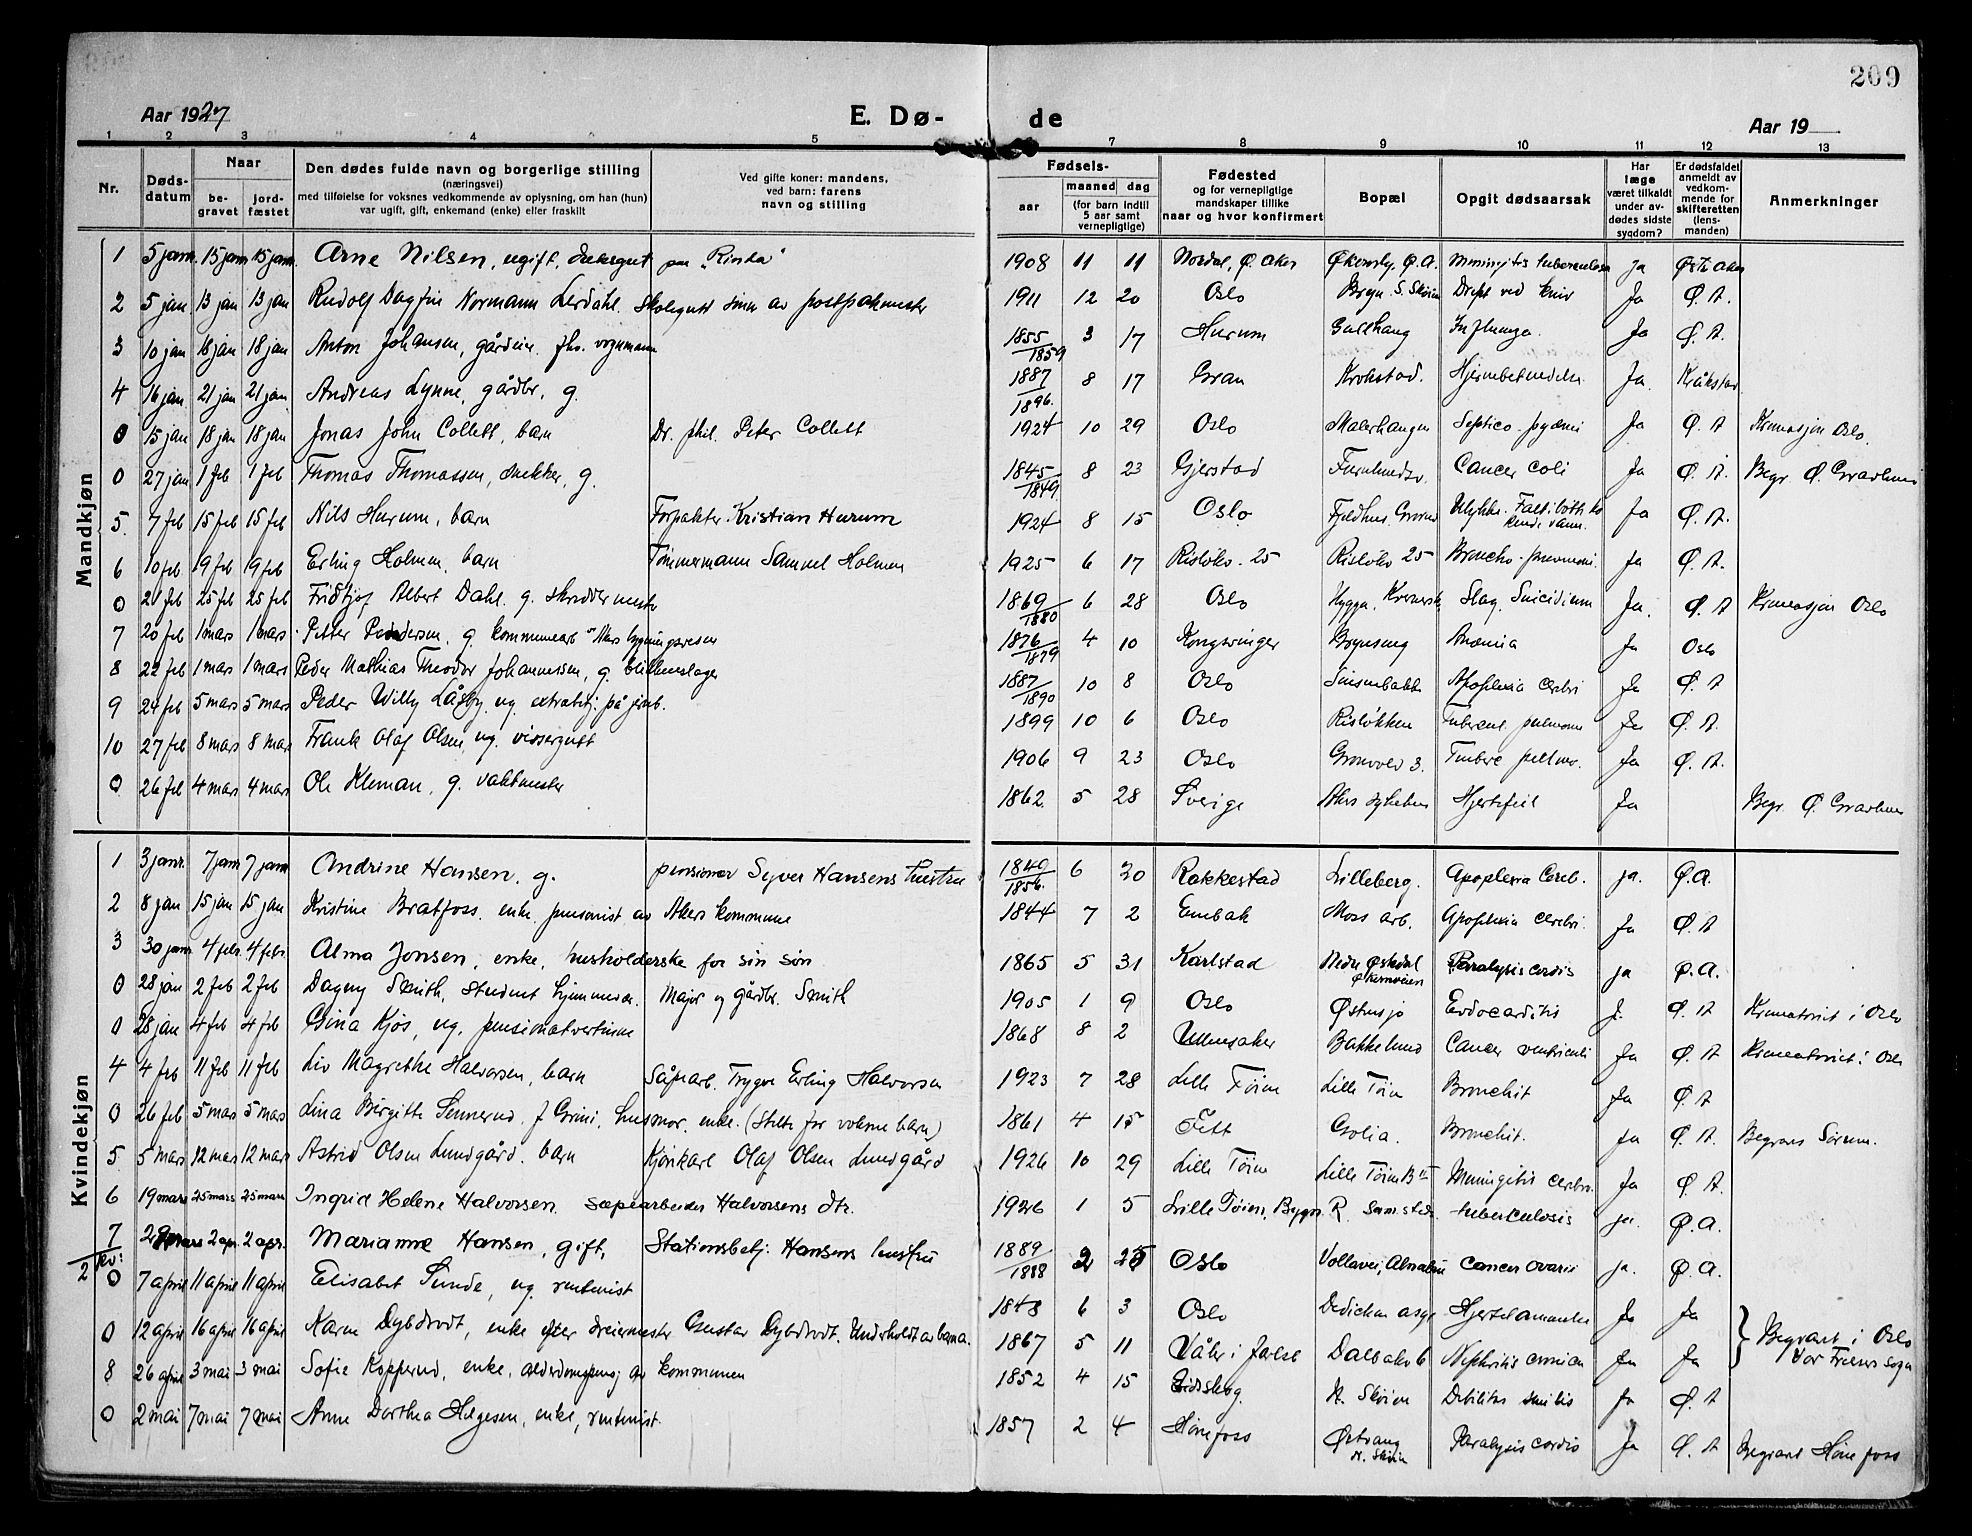 209
Aar 1927
E. Dø- de
Aar 19
1 2 3 4 5 7 8 9 10 11 12 13
Nr.
Døds-
datum
Naar
be-
gravet
jord-
fæstet
Den dødes fulde navn og borgerlige stilling
(næringsvei)
med tilføielse for voksnes vedkommende av oplysning, om han (hun)
var ugift, gift, enkemand (enke) eller fraskilt
Ved gifte koner: mandens,
ved barn: farens
navn og stilling
Fødsels-
aar
maaned dag
(for barn indtil
5 aar samt
vernepligtige)
Fødested
og for vernepligtige
mandskaper tillike
naar og hvor konfirmert
Bopæl
Opgit dødsaarsak
Har
læge
været tilkaldt
under av-
dødes sidste
sygdom?
Er dødsfaldet
anmeldt av
vedkom-
mende for
skifteretten
(lens-
manden)
Anmerkninger
Mandkjøn
1 5 janr. 15 janr 15 janr. Arne Nilsen, ugift, dæksgut paa "Rinda" 1908 11 11 Nordal, Ø. Aker Økernly, Ø.A. Meningitis tuberculosa ja Østr Aker
2 5 jan 13 jan 13 jan Rudolf Dagfin Normann Lerdahl. Skolegutt sønn av postpakmester 1911 12 20 Oslo Bryn S. Skøien Drept ved kniv Ja Ø. A.
3 10 jan 18 jan 18 jan Anton Johansen, gårdeier. fhv. vognmann 1855/1859 3 17 Hurum Gullhaug Influenza. Ja Ø. A.
4 16 jan 21 jan 21 jan Andreas Lynne, gårdbr, g. 1887/1896. 8 17 Gran Krokstad. Hjernebetendelse Ja. Kråkstad
0 15 jan 18 jan 18 jan Jonas John Collett, barn Dr. phil. Peter Collett 1924 10 29 Oslo Malerhaugen Septico-pyæmi Ja Ø. A Kremasjon Oslo.
0 27 jan 1 feb 1 feb Thomas Thomassen, snekker, g. 1845/1849 8 23 Gjerstad Cancer coli Ja Ø. A. Begr Ø. Gravlund
5 7 feb 15 feb 15 feb Nils Hurum, barn Forpakter Kristian Hurum 1924 8 15 Oslo Fjeldhus, Grorud Ulykke. Ja Ø. A.
6 10 feb 19 feb 19 feb Erling Holmen, barn Tømmermann Samuel Holmen 1925 6 17 Risløkv. 25 Risløkv 25 Broncho-pneumoni. Ja Ø. A.
0 21 feb 25 feb 25 feb Fridtjof Albert Dahl. g. skreddermester 1869/1880 6 28 Oslo Slag, Suicidium Ja. Ø. A Kremasjon Oslo
7 20 feb 1 mars 1 mars Petter Pedersen, g kommunearb 1876/1879 4 10 Kongsvinger Brynseng Anæmia Ja Oslo
8 22 feb 1 mars 1 mars Peder Mathias Theodor Johannessen, g. blikkenslager 1887/1890 10 8 Oslo Sinsenbakk Apoplexia cerebri Ja Ø. A
9 24 feb 5 mars 5 mars Peder Willy Låsby, ug. extrabetj. på jernb. 1899 10 6 Oslo Risløkken Tubercul. pulmonu Ja Ø. A.
10 27 feb 8 mars 8 mar Frank Olaf Olsen, ug. visergutt 1906 9 23 Oslo Gronvolv 3. Tuberc pulmo. Ja Ø. A.
0 26 feb 4 mars 4 mars Ole Kleman, g. vaktmester 1862 5 28 Sverige Akers sykehus Hjertefeil Ja Begr. Ø. Gravlund
Kvindekjøn
1 3 janr. 7 janr 7 janr Andrine Hansen, g. pensioner Syver Hansens hustru 1849/1856. 6 20 Rakkestad Lilleberg. Apoplexia Cereb. ja. Ø.A.
2 8 jan 15 jan 15 jan Kristine Bratfoss. enke, pensionist av Akers kommune 1844 7 2 Enebak Moss arb. Apoplexia cerebri. Ja Ø. A
3 30 janr 4 febr. 4 febr. Alma Jonsen, enke, husholderske for sin søn 1865 5 31 Karlstad Nedre Østdal Økernveien Paralysis cordis ja Ø.A.
0 28 jan 2 feb 2 feb Dagny Smith, student hjemmevær. Major og gårdbr. Smith 1905 1 9 Oslo Østensjø Endocarditis J. Ø. A Krematoriet i Oslo
0 28 jan 4 feb 4 feb Gina Kjøs, ug, pensionatvertinne 1868 8 2 Ullensaker Bakkelund Cancer ventriculi Ja Ø. A Krematoriet i Oslo
4 4 feb 11 feb 11 feb Liv Magrethe Halvorsen, barn Såpearb. Trygve Erling Halvorsen 1923 7 28 Lille Tøien Lille Tøien Bronchit Ja Ø. A
0 26 feb 5 mars 5 mars Lina Birgitte Sennerud, f Grini, husmor, enke. (Stelte for voksne barn) 1861 4 15 Fett Golia. Bronchit. Ja Ø. A. Begraves Sørum.
5 5 mars 12 mars 12 mars Astrid Olsen Lundgård. barn Kjørekarl Olaf Olsen Lundgård 1926 10 29 Lille Tøien Lille Tøien Meningitis cerebro. Ja Ø. A.
6 19 mars 25 mars 25 mars Ingrid Helene Halvorsen sæpearbeider Halvorsens dtr. 1926 1 5 Lille Tøien, Brynsv. R. samsteds. tuberculosis ja. Ø.A.
7 29 mars 2 apr. 2 apr. Marianne Hansen, gift, Stationsbetj. Hansens hustru 1889/1888 2 25 Oslo Vollavei, Alnabru cancer ovarii ja. Ø.A.
2/kv:
0 7 april 11 april 11 april Elisabet Sunde, ug. rentenist 1848 6 3 Oslo Dedichens asyl Hjertelammelse Ja Ja
0 12 april 16 april 16 april Karen Dybdrodt, enke efter dreiermester Gustav Dybdrodt. Underholdt av barna. 1867 5 11 Våler i Jarlsb Dalbakv 6 Nephritis cronica Ja Ja } Begravet i Oslo Vor Frelsers sogn
8 26 april 3 mai 3 mai Sofie Kopperud, enke, alderdomspensj av kommunen 1852 4 15 Eidskog. N. Skøien Debilitas senilis Ja Ø. A
0 2 mai 7 mai 7 mai Anne Dorthea Helgesen, enke, rentenist. 1857 2 4 Hønefoss Østvang N. Skøien Paralysis cordis Ja Ø. A Begravet Hønefoss